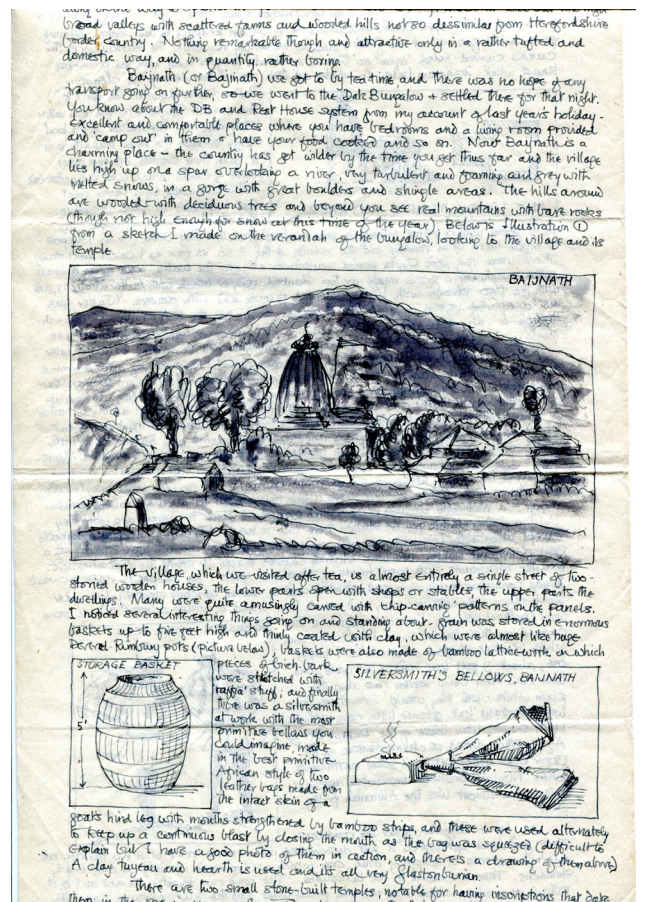 broad valleys with scattered farms and wooded hills not so dissimilar from Herefordshire
border country. Nothing remarkable though and attractive only in a rather tufted and
domestic way, and in quantity, rather boring.
Baijnath (or Bajjnath) we got to by tea time and there was no hope of any
transport going on further, so we went to the Dak Bungalow & settled there for that night.
You know about the DB and Rest House system from my account of last year's holiday -
excellent and comfortable places where you have bedrooms and a living room provided
and 'camp out' in them & have your food cooked and so on. Now Baijnath is a
charming place - the country has got wilder by the time you get thus far and the village
lies high up on a spur overlooking a river, very turbulent and foaming and grey with
melted snows, in a gorge with great boulders and shingle areas. The hills around
are wooded with deciduous trees and beyond you see real mountains with bare rocks
(though not high enough for snow at this time of the year). Below is Illustration ①
from a sketch I made on the verandah of the bungalow, looking to the village and its
temple.
BAIJNATH
The village, which we visited after tea, is almost entirely a single street of two-
storied wooden houses, the lower parts open with shops or stables, the upper parts the
dwellings. Many were quite amusingly carved with chip-carving patterns on the panels.
I noticed several interesting things going on and standing about. Grain was stored in enormous
baskets up to five feet high and thinly coated with clay, which were almost like huge
Deverel Rimbury pots (picture below); baskets were also made of bamboo lattice-work on which
STORAGE BASKET
5'
pieces of birch bark
were stretched with
'raffia' stuff; and finally
there was a silversmith
at work with the most
primitive bellows you
could imagine, made
in the best primitive
African style of two
leather bags made from
the intact skin of a
SILVERSMITH'S BELLOWS, BAIJNATH
goat's hind leg with mouths strengthened by bamboo strips, and these were used alternately
to keep up a continuous blast by closing the mouth as the bag was squeezed (difficult to
explain but I have a good photo of them in action, and there is a drawing of them above)
A clay tuyeau and hearth is used and its all very Glastonburian.
There are two small stone-built temples, notable for having inscriptions that date